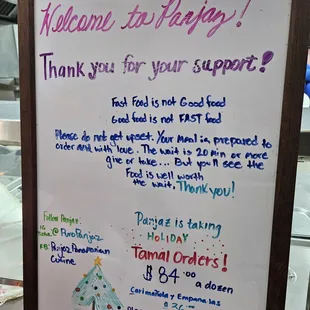 Welcome to Panjaz!
Thank you for your support!
Fast Food is not Good food
Good food is not FAST food
Please do not get upset. Your meal is prepared to
order and with love. The wait is 20 min or more
give or take... But you'll see the
Food is well worth
the wait. Thank you!
Follow Panjaz:
IG @ PuroPanjaz
FB: Panjaz Panamanian
Cuisine
Panjaz is taking
HOLIDAY
Tamal Orders!
$84.00
a dozen
Carimañola y Empanadas